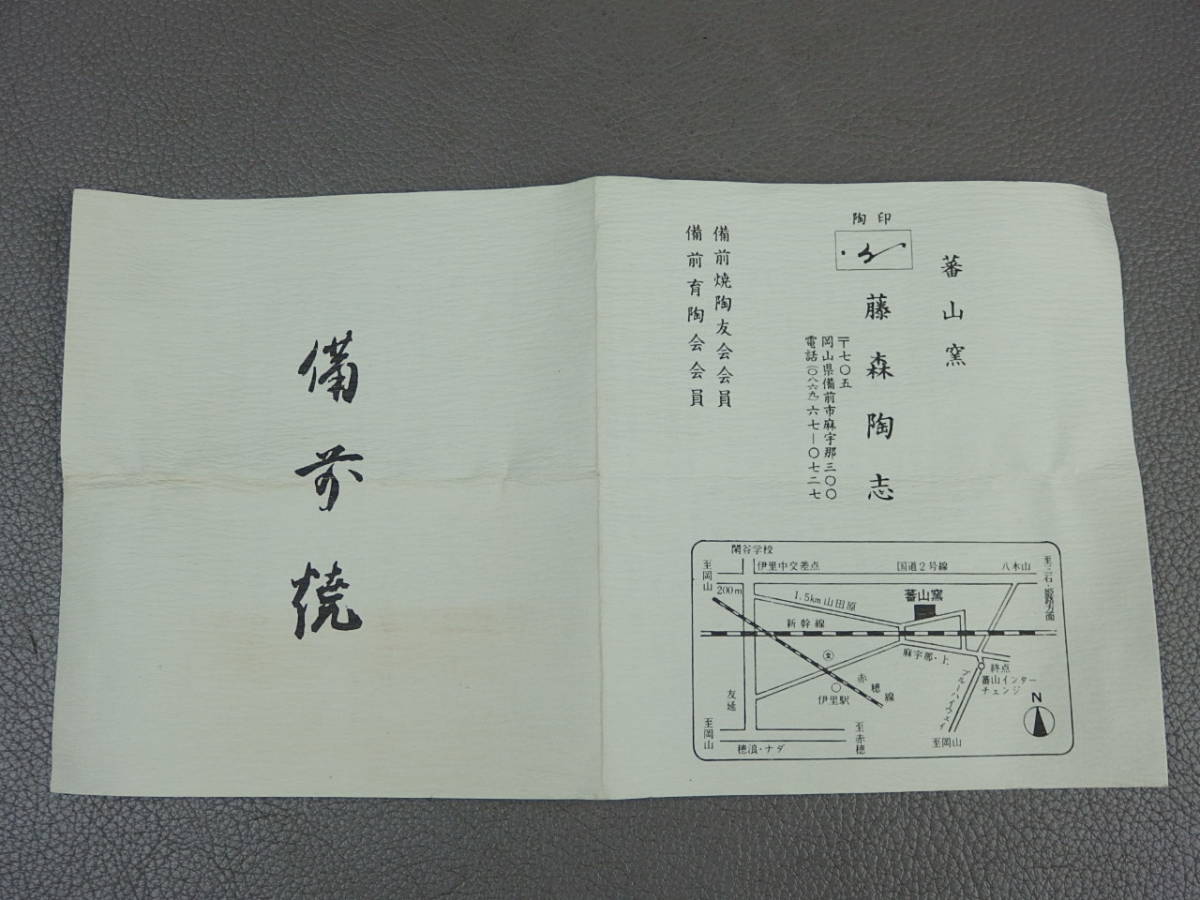 蕃山窯
陶印
藤森陶志
〒七〇五
岡山県備前市麻宇那三〇〇
電話(〇八六九)六七―〇七二七
備前焼陶友会会員
備前育陶会会員
備前焼
閑谷学校
至岡山
伊里中交差点
国道2号線
八木山
至三石・姫路方面
200m
1.5km山田原
蕃山窯
新幹線
文
麻宇那・上
終点
蕃山インターチェンジ
ブルーハイウェイ
赤穂線
伊里駅
友延
N
至岡山
穂浪・ナダ
至赤穂
至岡山